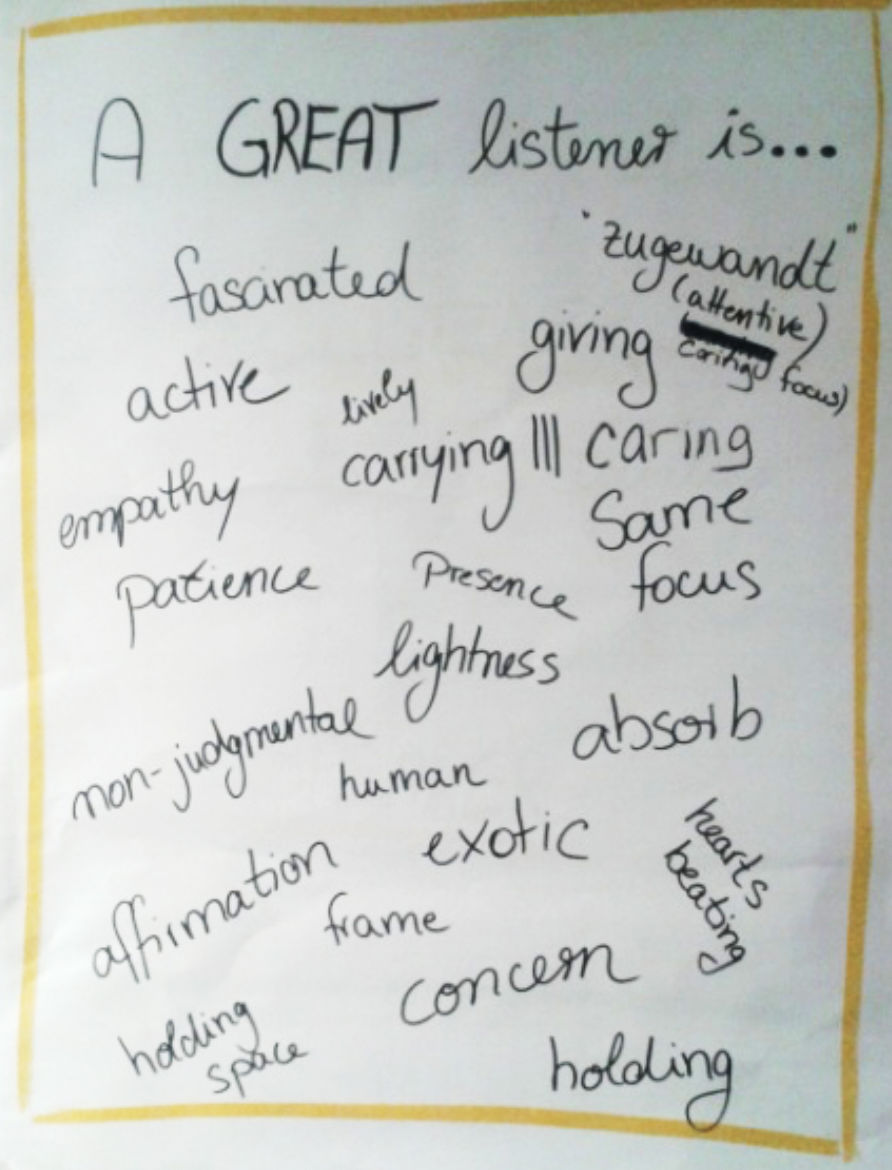 A GREAT listener is...
fascinated
"zugewandt"
(attentive)
caring focus)
giving
active
lively
carrying ||| caring
empathy
Same
focus
patience
Presence
lightness
non-judgmental
absorb
human
exotic
hearts
beating
affirmation
frame
concern
holding
space
holding